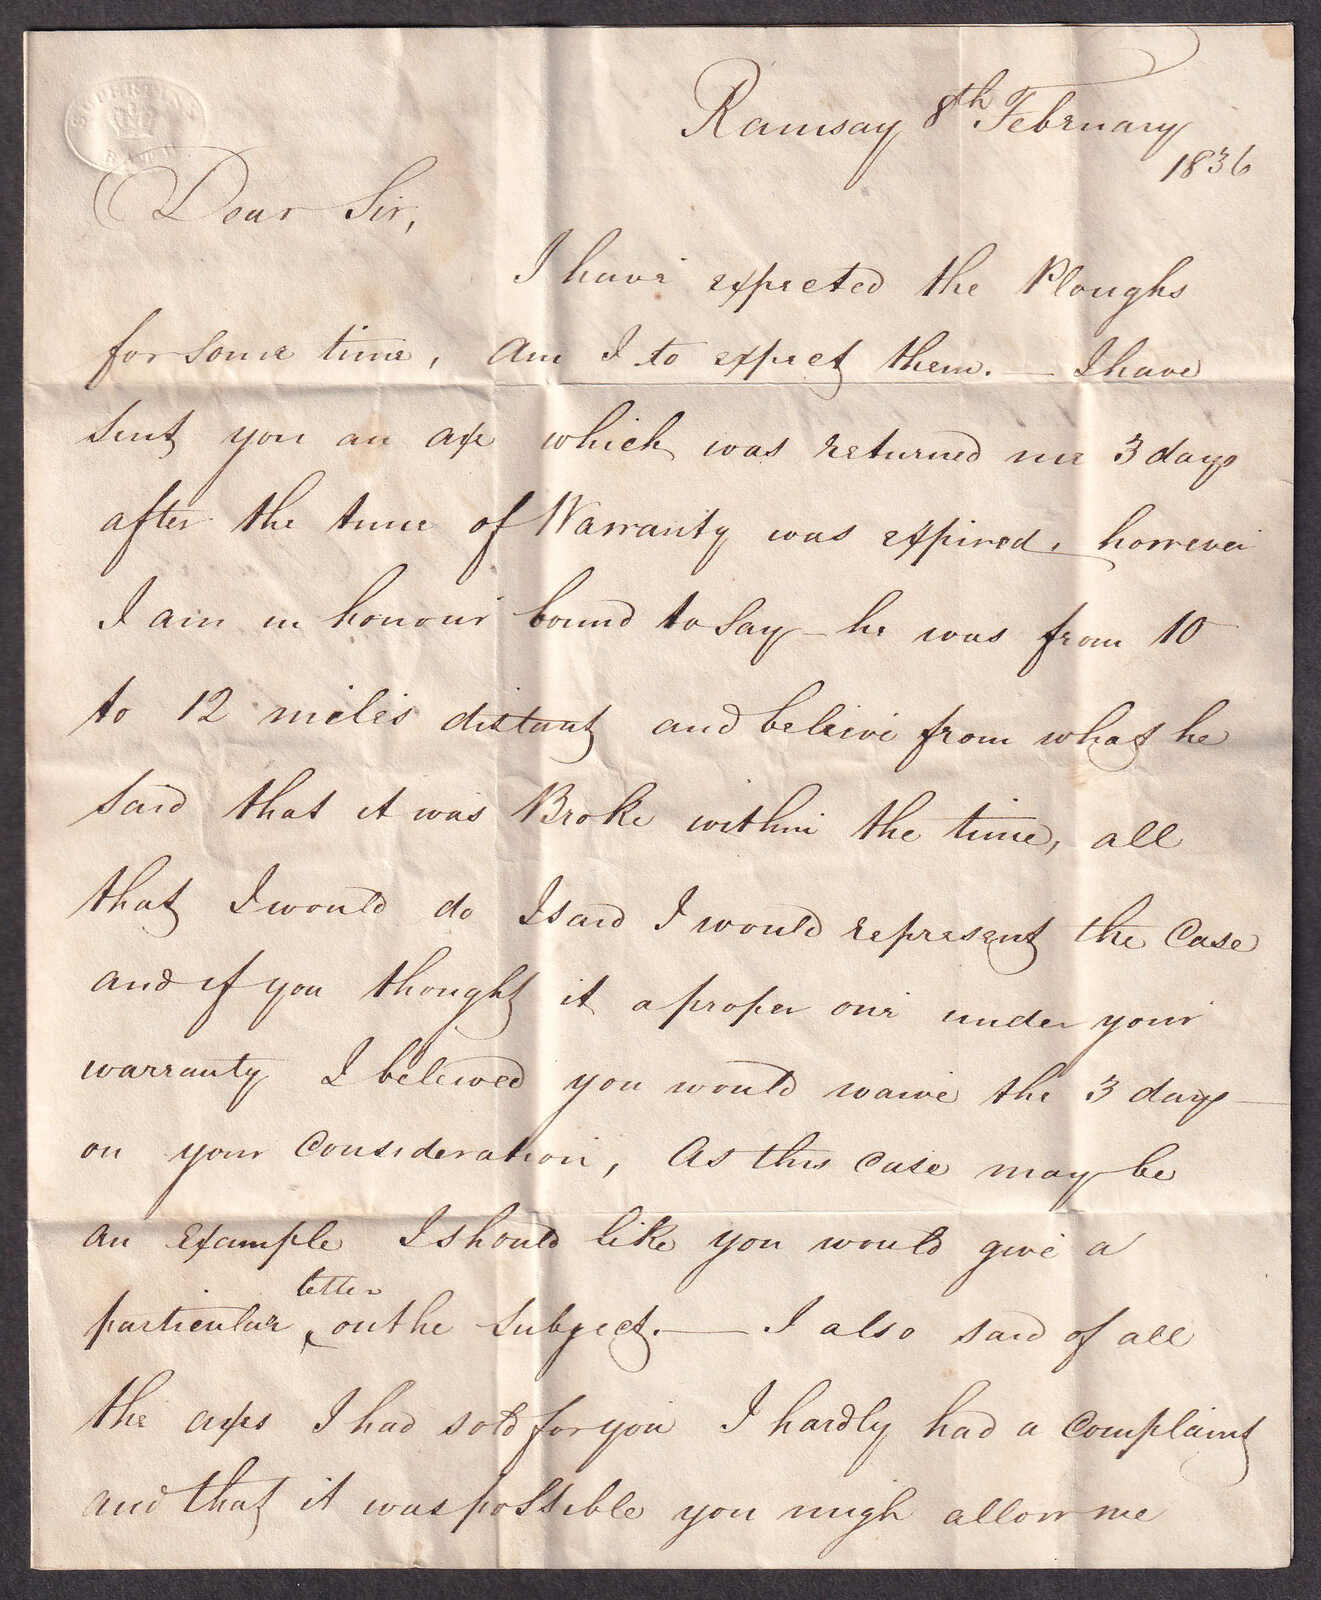 SUPERFINE
BATH
Ramsay 8th February
1836
Dear Sir,
I have expected the Ploughs
for some time, Am I to expect them. — I have
sent you an axe which was returned me 3 days
after the time of Warranty was expired, however
I am in honour bound to say — he was from 10
to 12 miles distant and beleive from what he
said that it was Broke within the time, all
that I would do I said I would represent the Case
and if you thought it a proper one under your
warranty I beleived you would waive the 3 days —
on your Consideration, As this case may be
an Example I should like you would give a
letter
particular ‸ on the subject. — I also said of all
the axes I had sold for you I hardly had a Complaint
and that it was possible you migh allow me